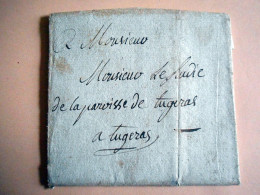 A Monsieur
Monsieur Le Sindic
de la paroisse de tugeras
a tugeras